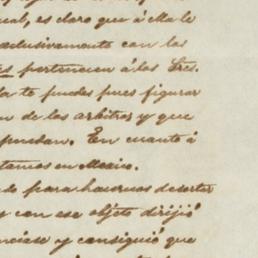 ual, es claro que á ella le
exclusivamente con las
pertenecen á los Sres.
la te puedes pues figurar
n de los arbitros y que
pensban. En cuanto á
tamos en Mexico.
do para hacernos desertar
y con ese objeto dirijió
nciase y consiguió que